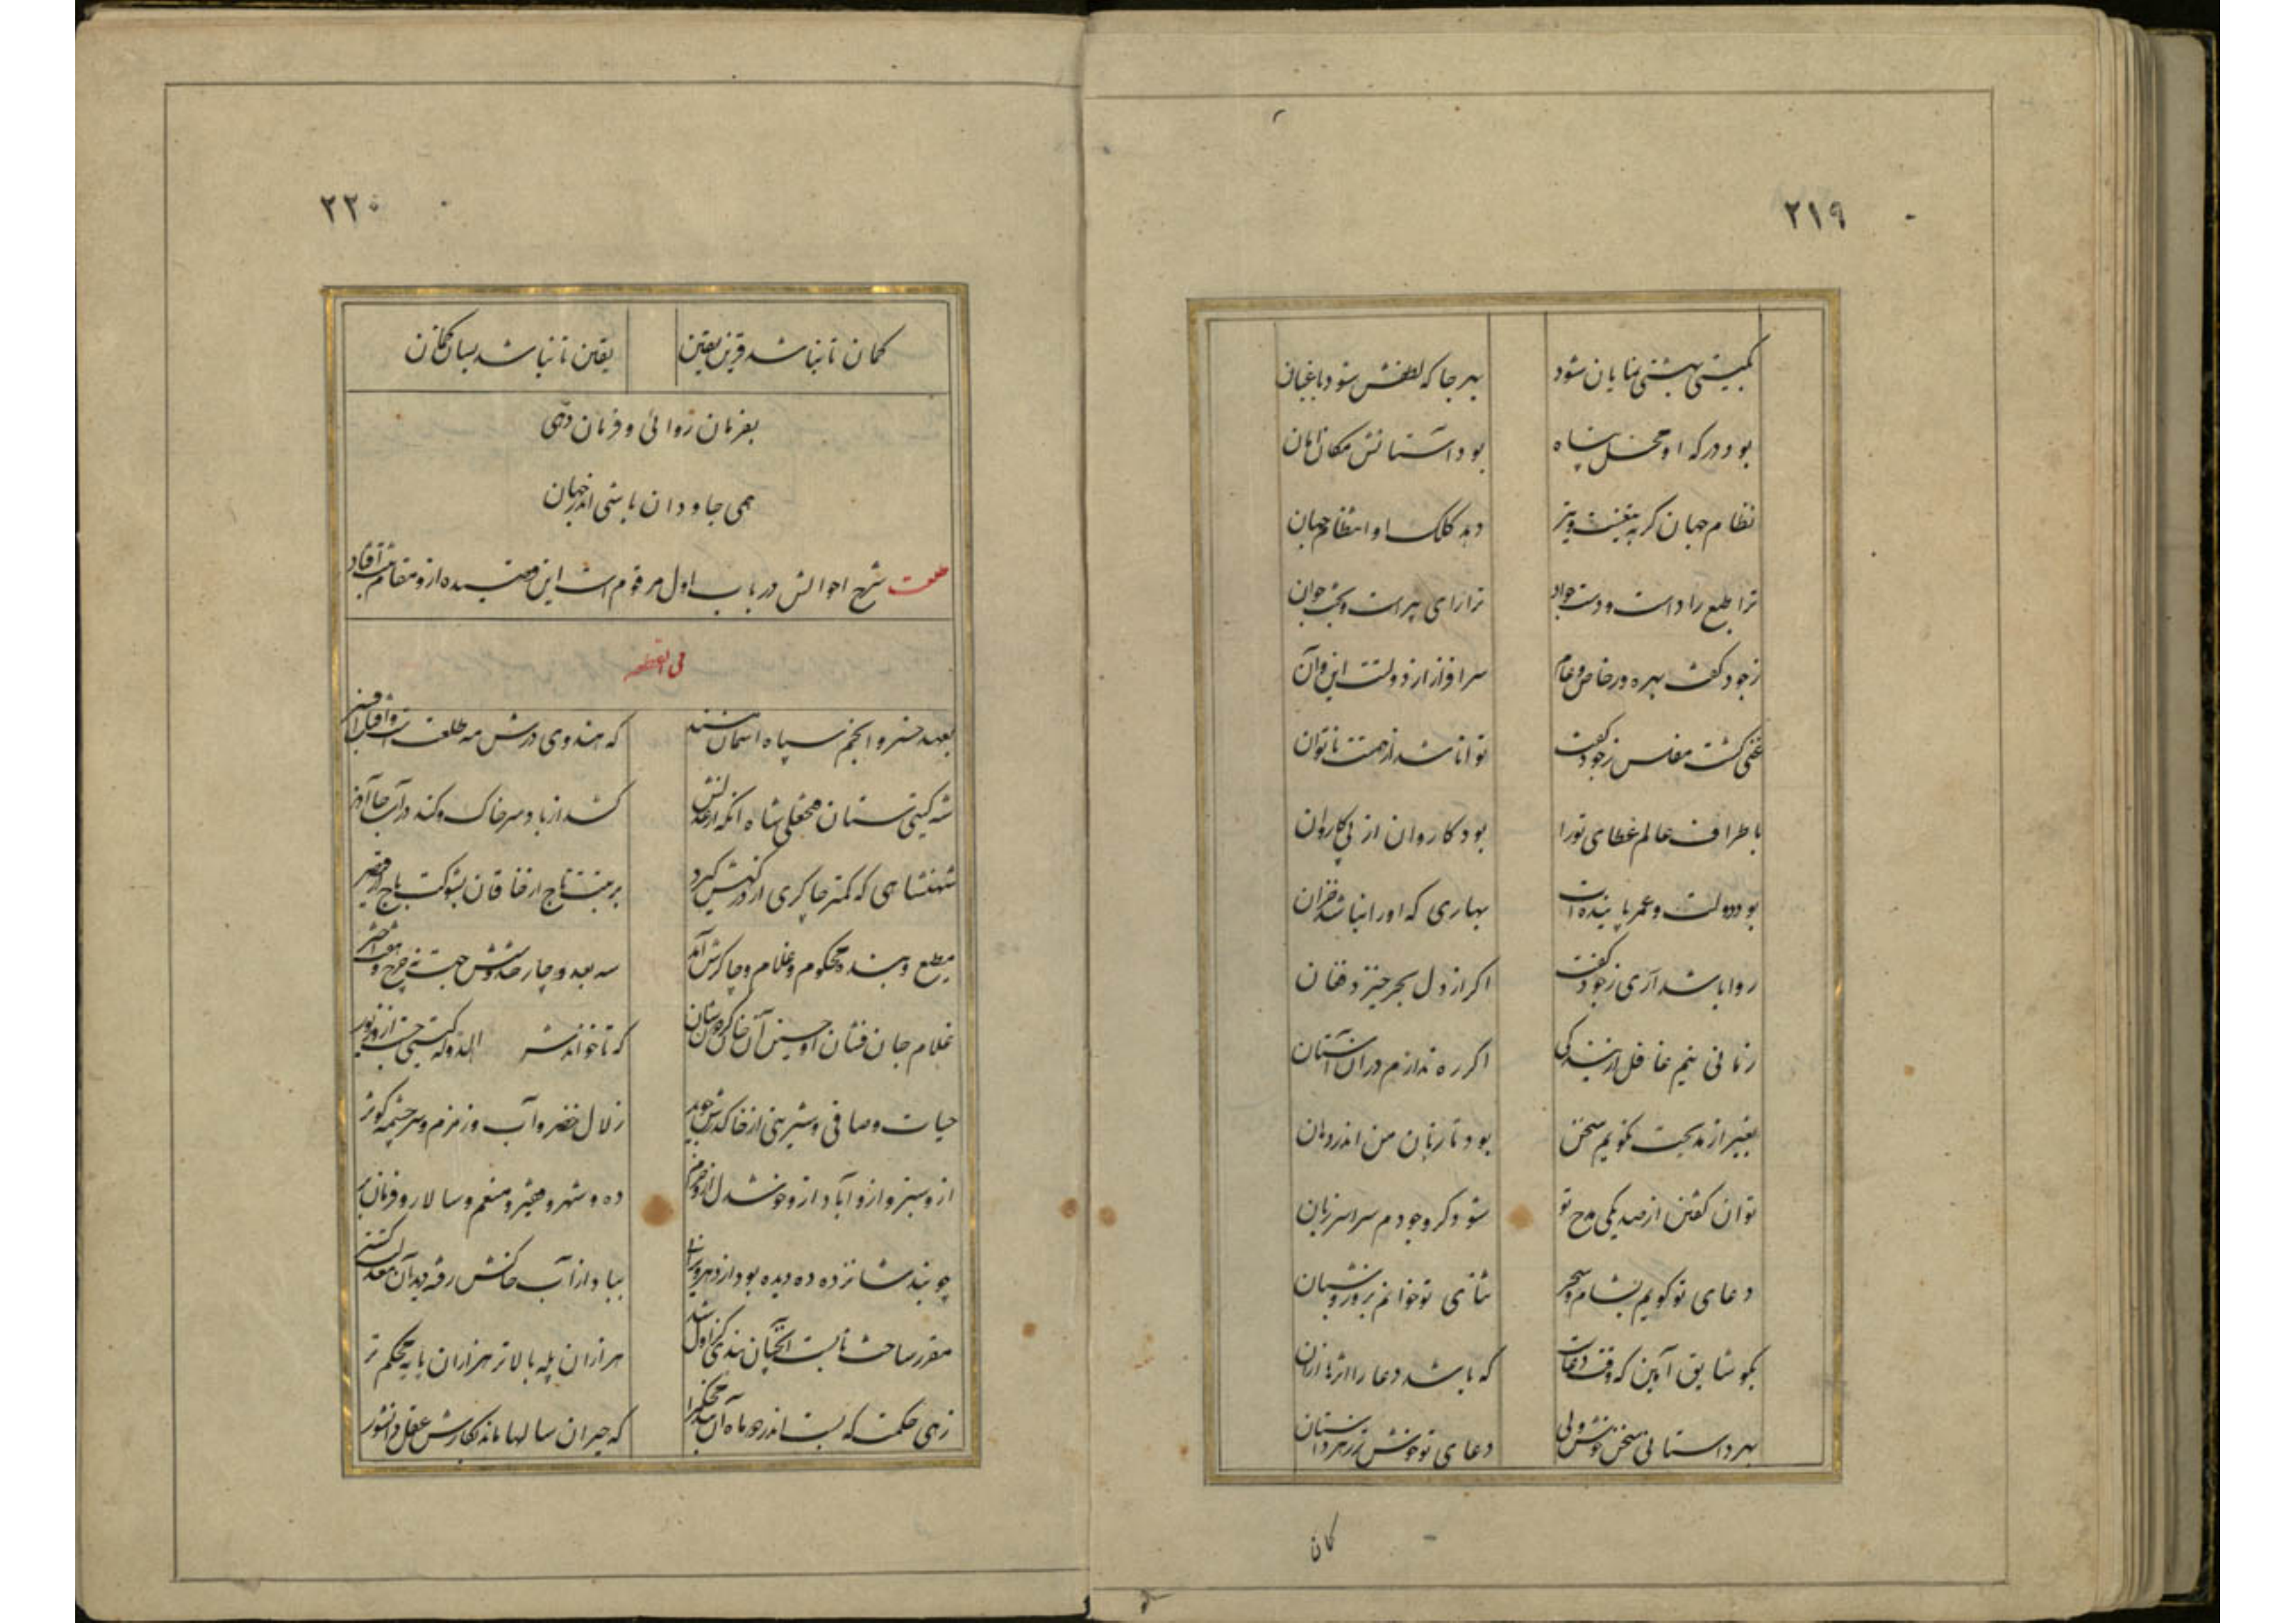 ۲۱۹
بگیتی بهشتی نمایان شود بهر جا که لطفش شود باغبان
بود درگه او محل پناه بود آستانش مکان امان
نظام جهان گر به تیغست و تیر دهد کلک او انتظام جهان
ترا طبع راد است و دست جواد ترا رای پیر است و بخت جوان
ز جود کفت بهره ور خاص و عام سرافراز از دولتت این و آن
غنی گشت مفلس ز جود کفت توانا شد از همتت ناتوان
باطراف عالم عطای تو را بود کاروان از پی کاروان
بود دولت و عمر پاینده ات بهاری که او را نباشد خزان
روا باشد آری ز جود کفت اگر از دل بحر خیزد فغان
زمانی نیم غافل از بندگی اگر ره ندارم در آن آستان
بغیر از مدیحت نگویم سخن بود تا زبان من اندر دهان
توان گفتن از صد یکی مدح تو شود گر وجودم سراسر زبان
دعای تو گویم بشام و سحر ثنای تو خوانم بروز و شبان
بگو شایق آمین که وقت دعاست که باشد دعا را اثرها از آن
بهر داستانی سخن خوش ولی دعای تو خوشتر ز هر داستان
کان
۲۲۰
کمان تا نباشد قرین یقین یقین تا نباشد بسان گمان
بفرمان روائی و فرمان دهی
همی جاودان باشی اندر جهان
طلعت شرح احوالش در باب اول مرقوم است این قصیده ازو مقام افتاد
بعهد خسرو انجم سپاه آسمان مسند که هندوی درش مه طلعت است و آفتاب افسر
شه گیتی ستان فتحعلی شاه آنکه از عدلش کشد از باد سر خاک و کند در آب جا آذر
شهنشاهی که کمتر چاکری از درگهش گیرد برتبت تاج از خاقان بشوکت باج از قیصر
مطیع و بنده محکوم و غلام و چاکرش آمد سه بعد و چار حد و شش جهت نه چرخ و هفت اختر
غلام جان فشان او حسین آن خان که تا خواندش الدوله گیتی
حیات و صافی و شیرینی از خاک درش جوید زلال خضر و آب زمزم و سرچشمه کوثر
ازو سبز و ازو آباد ازو خوشدل ازو خرم ده و شهر و فقیر و منعم و سالار و فرمان بر
چو بند شانزده ده دیده بود از دهر مباد از آب خاکش رفته دید آن معدلت گستر
مقرر ساخت تا بست آنچنان بندی کز اول شد هزاران پله بالاتر هزاران پایه محکم تر
زهی حکمت که بست اندر دو ماه آن بند محکم را که حیران سالها ماند بکارش عقل دانشور